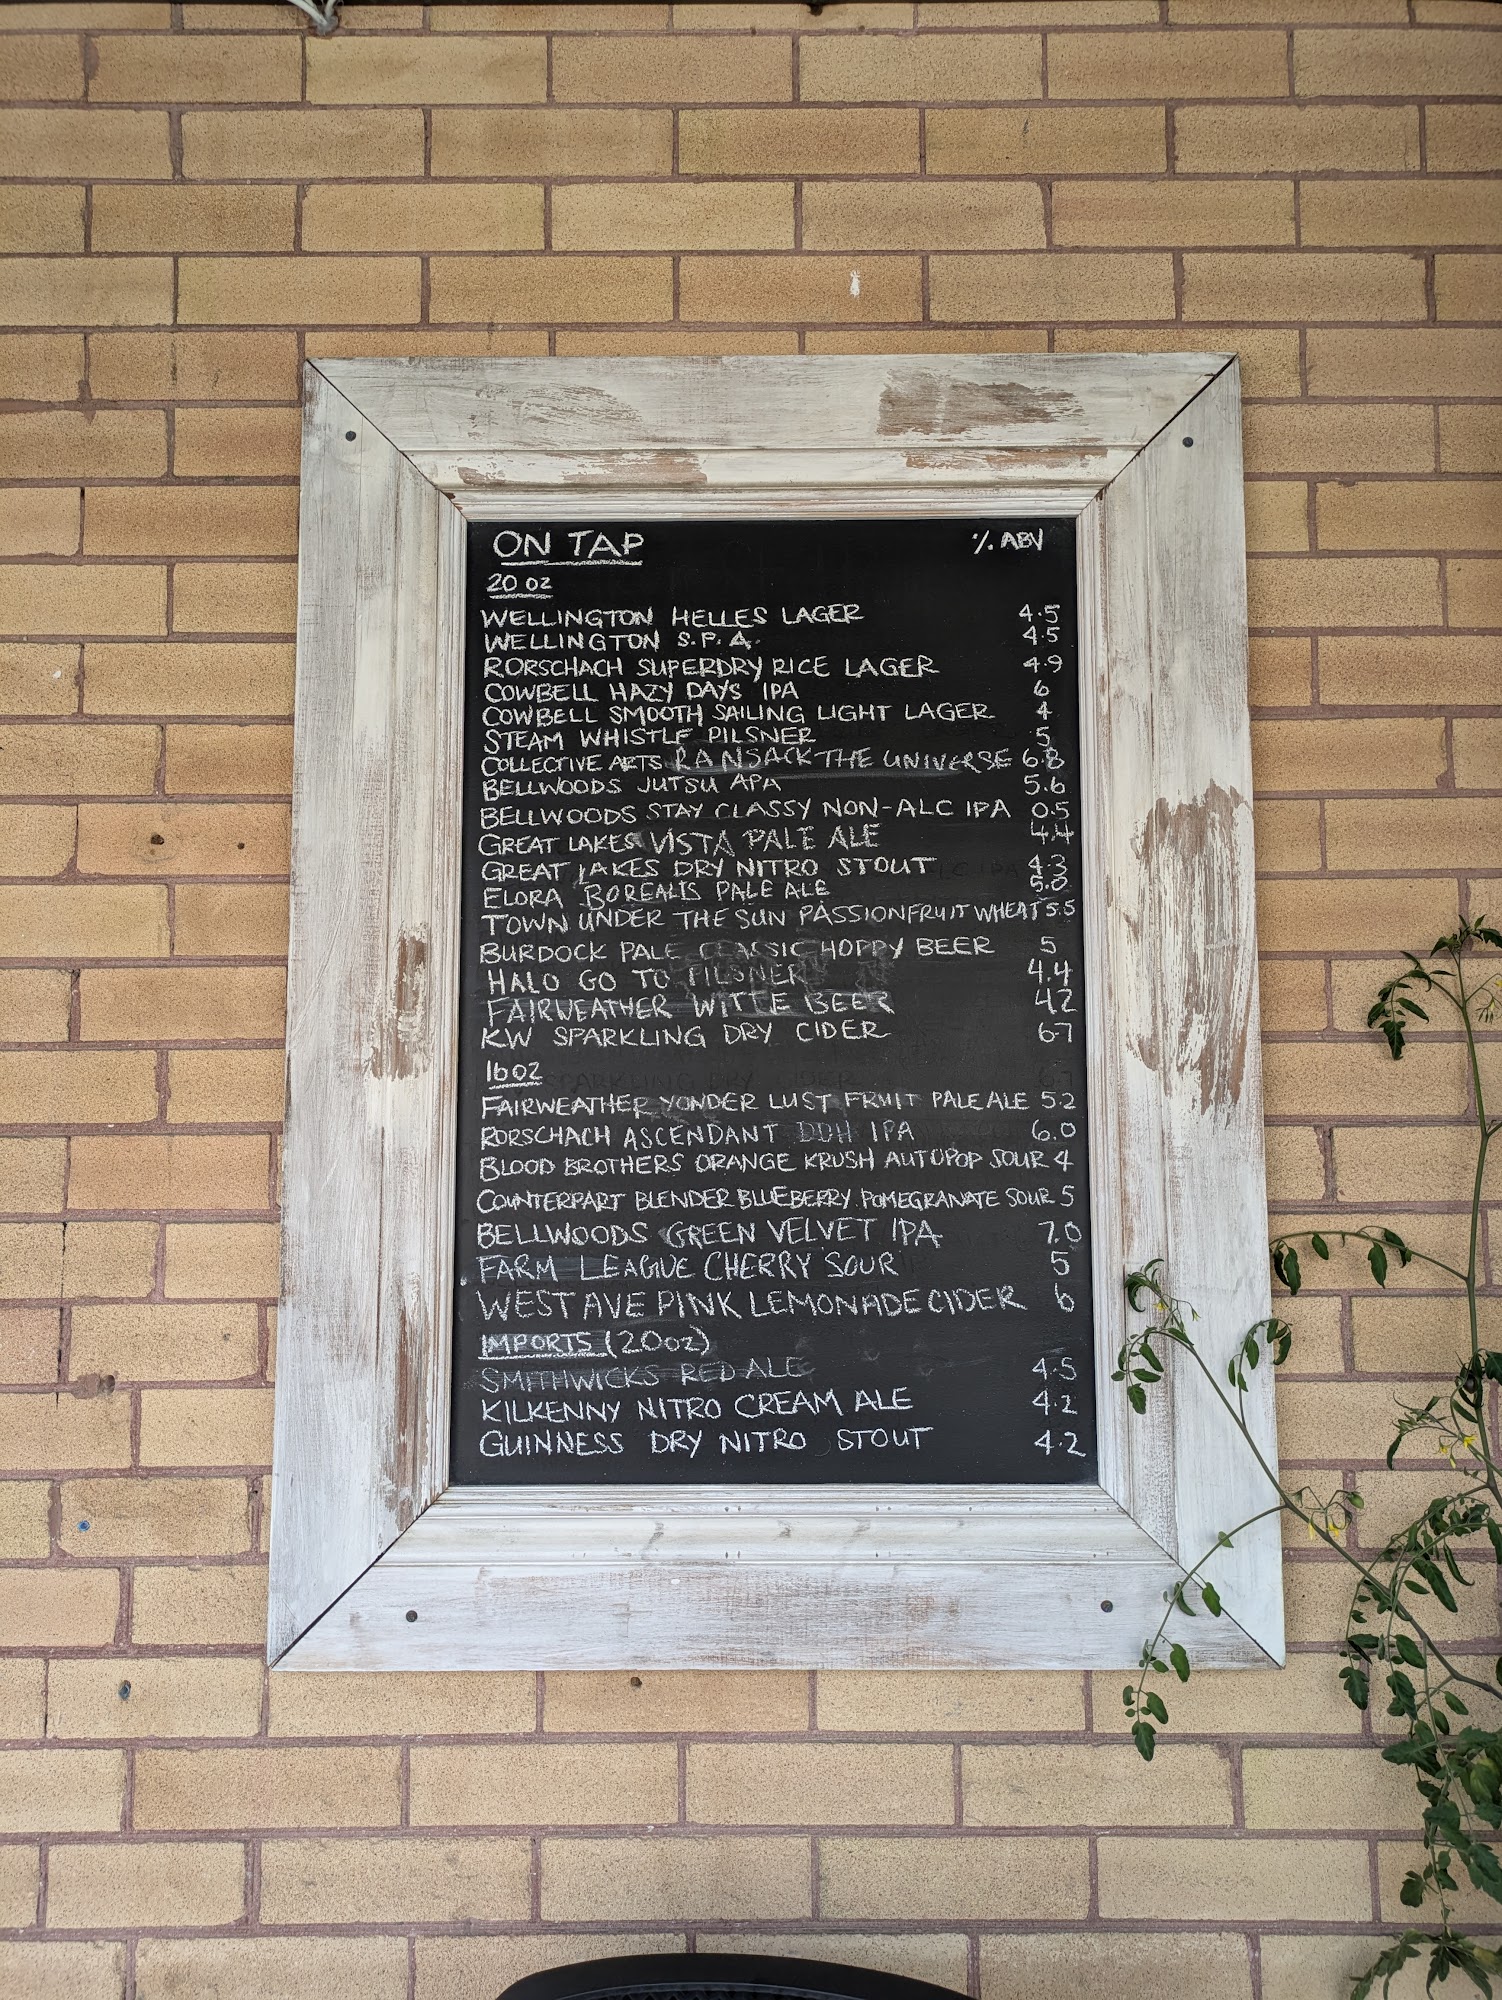 ON TAP % ABV
20 oz
WELLINGTON HELLES LAGER 4.5
WELLINGTON S.P.A. 4.5
RORSCHACH SUPERDRY RICE LAGER 4.9
COWBELL HAZY DAYS IPA 6
COWBELL SMOOTH SAILING LIGHT LAGER 4
STEAM WHISTLE PILSNER 5
COLLECTIVE ARTS RANSACK THE UNIVERSE 6.8
BELLWOODS JUTSU APA 5.6
BELLWOODS STAY CLASSY NON-ALC IPA 0.5
GREAT LAKES VISTA PALE ALE 4.4
GREAT LAKES DRY NITRO STOUT 4.3
ELORA BOREALIS PALE ALE 5.0
TOWN UNDER THE SUN PASSIONFRUIT WHEAT 5.5
BURDOCK PALE CLASSIC HOPPY BEER 5
HALO GO TO PILSNER 4.4
FAIRWEATHER WITTE BEER 4.2
KW SPARKLING DRY CIDER 6.7
16 oz
FAIRWEATHER YONDER LUST FRUIT PALE ALE 5.2
RORSCHACH ASCENDANT DDH IPA 6.0
BLOOD BROTHERS ORANGE KRUSH AUTOPOP SOUR 4
COUNTERPART BLENDER BLUEBERRY POMEGRANATE SOUR 5
BELLWOODS GREEN VELVET IPA 7.0
FARM LEAGUE CHERRY SOUR 5
WEST AVE PINK LEMONADE CIDER 6
IMPORTS (20oz)
SMITHWICKS RED ALE 4.5
KILKENNY NITRO CREAM ALE 4.2
GUINNESS DRY NITRO STOUT 4.2